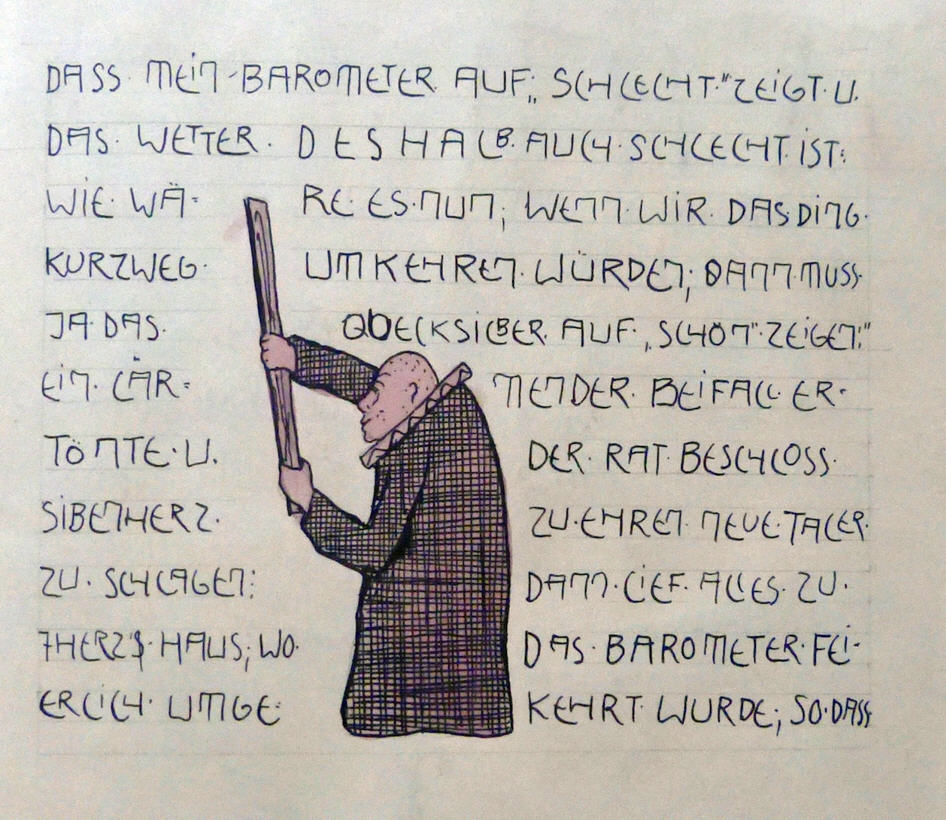 DASS· MEIN·BAROMETER AUF „SCHLECHT·"ZEIGT·U.
DAS· WETTER· DESHALB·AUCH·SCHLECHT·IST:
WIE· WÄ= RE· ES·NUN; WENN·WIR· DAS·DING·
KURZWEG· UMKEHREN·WÜRDEN; DANN·MUSS·
JA·DAS· QUECKSILBER· AUF·„SCHÖN"·ZEIGEN:"
EIN· LÄR= MENDER· BEIFALL ER=
TÖNTE·U. DER· RAT·BESCHLOSS·
SIBENHERZ· ZU·EHREN· NEUE·TALER·
ZU· SCHLAGEN: DANN·LIEF· ALLES· ZU·
7HERZ'S· HAUS; WO· DAS· BAROMETER·FEI=
ERLICH· UMGE= KEHRT· WURDE; SO·DASS